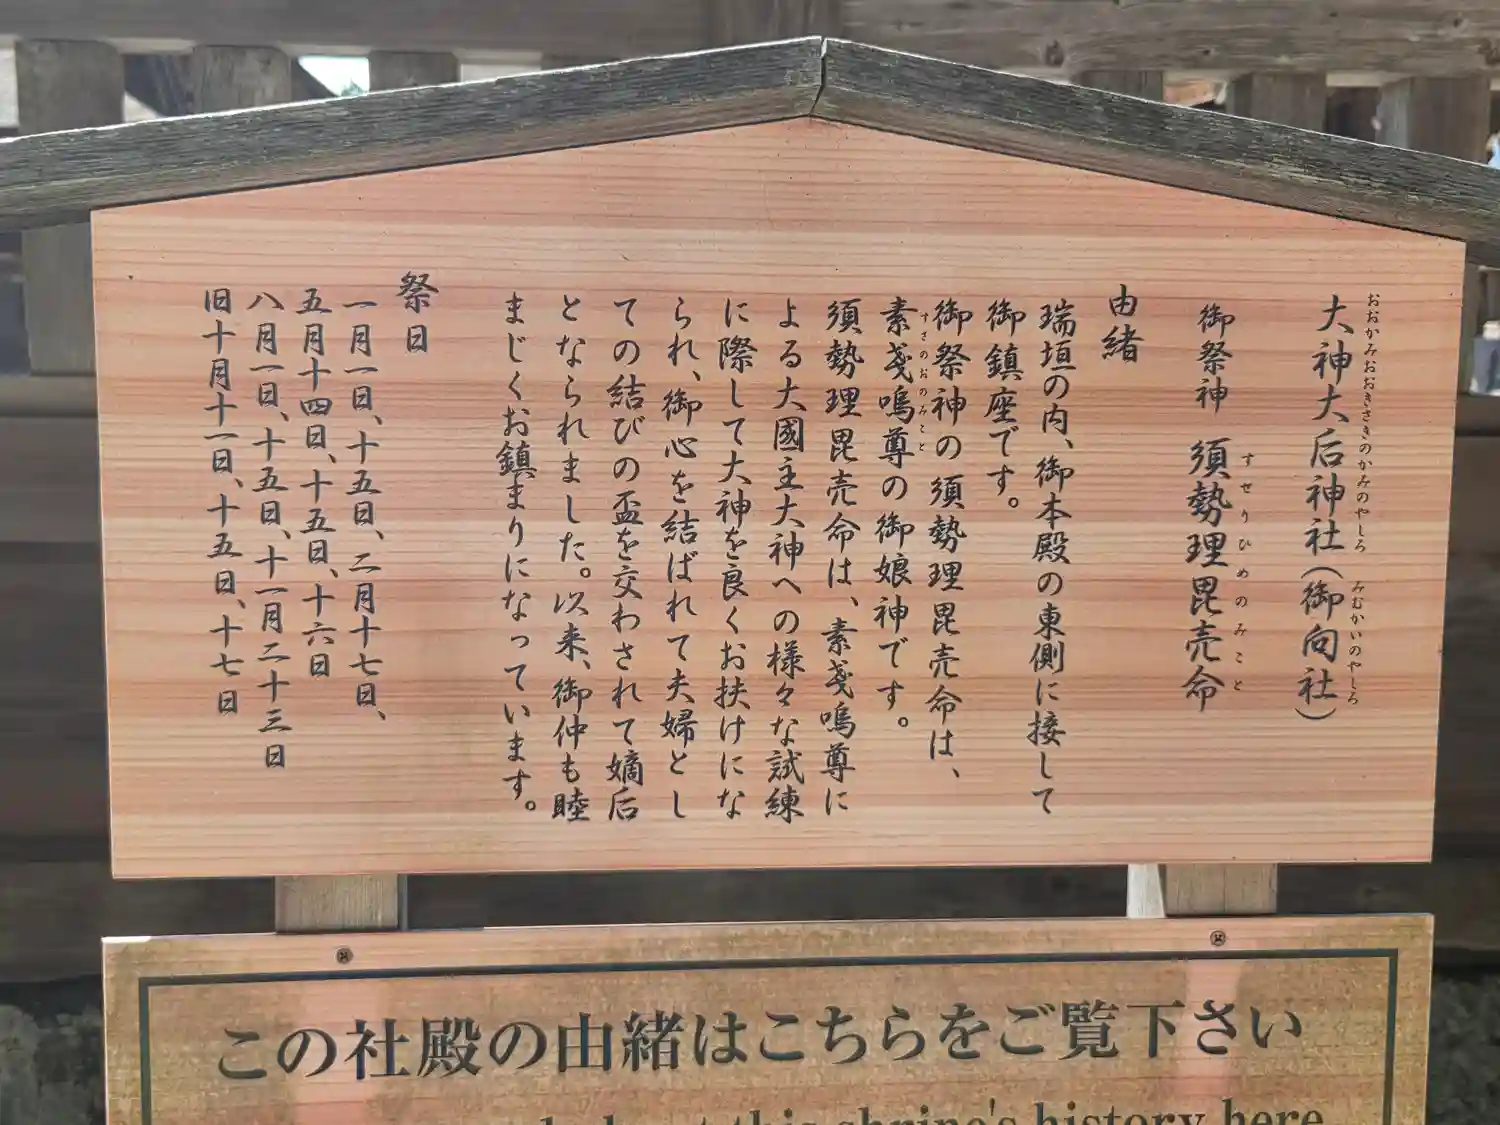 大神大后神社(御向社)
おおかみおおきさきのかみのやしろ
みむかいのやしろ
御祭神 須勢理毘売命
すせりひめのみこと
由緒
瑞垣の内、御本殿の東側に接して
御鎮座です。
御祭神の須勢理毘売命は、
素戔嗚尊の御娘神です。
すさのおのみこと
須勢理毘売命は、素戔嗚尊に
よる大國主大神への様々な試練
に際して大神を良くお扶けにな
られ、御心を結ばれて夫婦とし
ての結びの盃を交わされて嫡后
となられました。以来、御仲も睦
まじくお鎮まりになっています。
祭日
一月一日、十五日、二月十七日、
五月十四日、十五日、十六日
八月一日、十五日、十一月二十三日
旧十月十一日、十五日、十七日
この社殿の由緒はこちらをご覧下さい
this shrine's history here